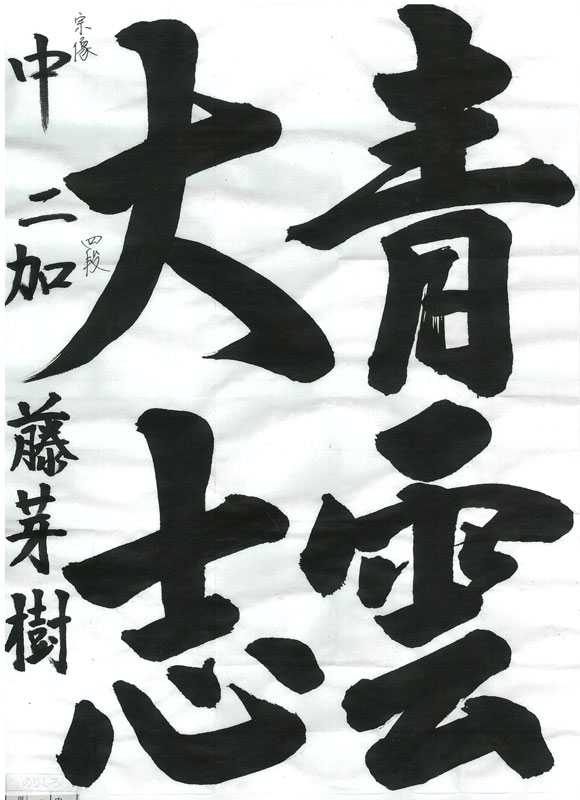 青雲
大志
宗像
四段
中二 加藤芽樹